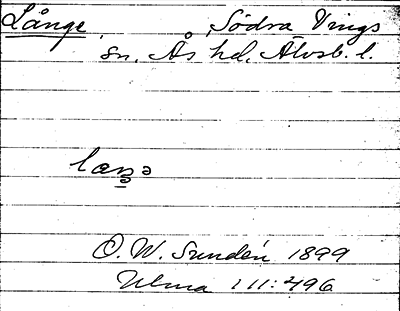 Långe, Södra Vings
sn, Ås hd, Älvsb. l.
O. W. Sundén 1899
Ulma 111:496